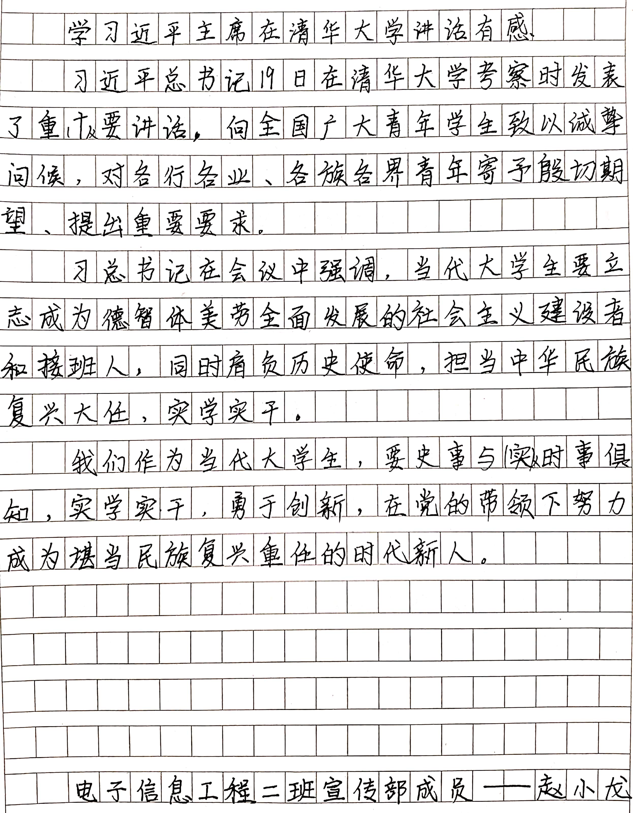 学习近平主席在清华大学讲话有感
习近平总书记19日在清华大学考察时发表
了重要讲话，向全国广大青年学生致以诚挚
问候，对各行各业、各族各界青年寄予殷切期
望、提出重要要求。
习总书记在会议中强调，当代大学生要立
志成为德智体美劳全面发展的社会主义建设者
和接班人，同时肩负历史使命，担当中华民族
复兴大任，实学实干。
我们作为当代大学生，要史事与时事俱
知，实学实干，勇于创新，在党的带领下努力
成为堪当民族复兴重任的时代新人。
电子信息工程二班宣传部成员——赵小龙